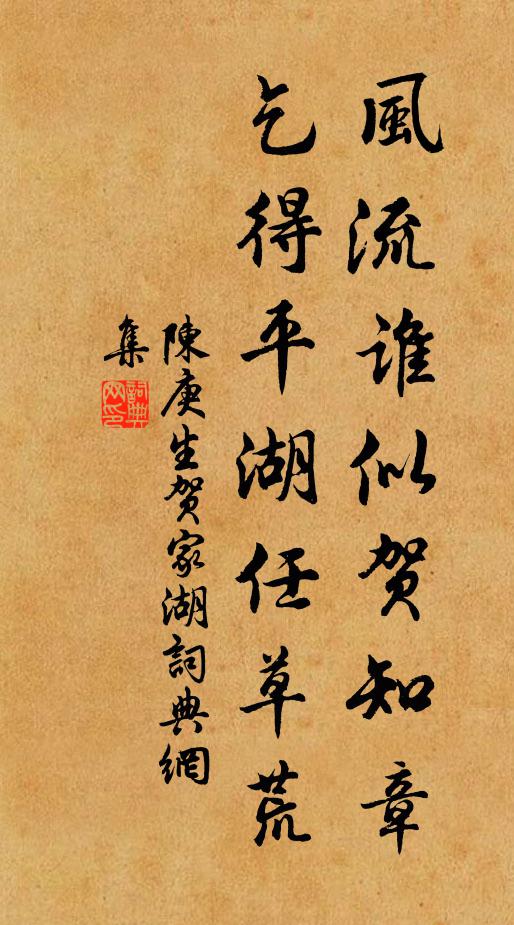 風流誰似賀知章
乞得平湖任草荒
陳庚生賀家湖詞典網
集
詞典
网印